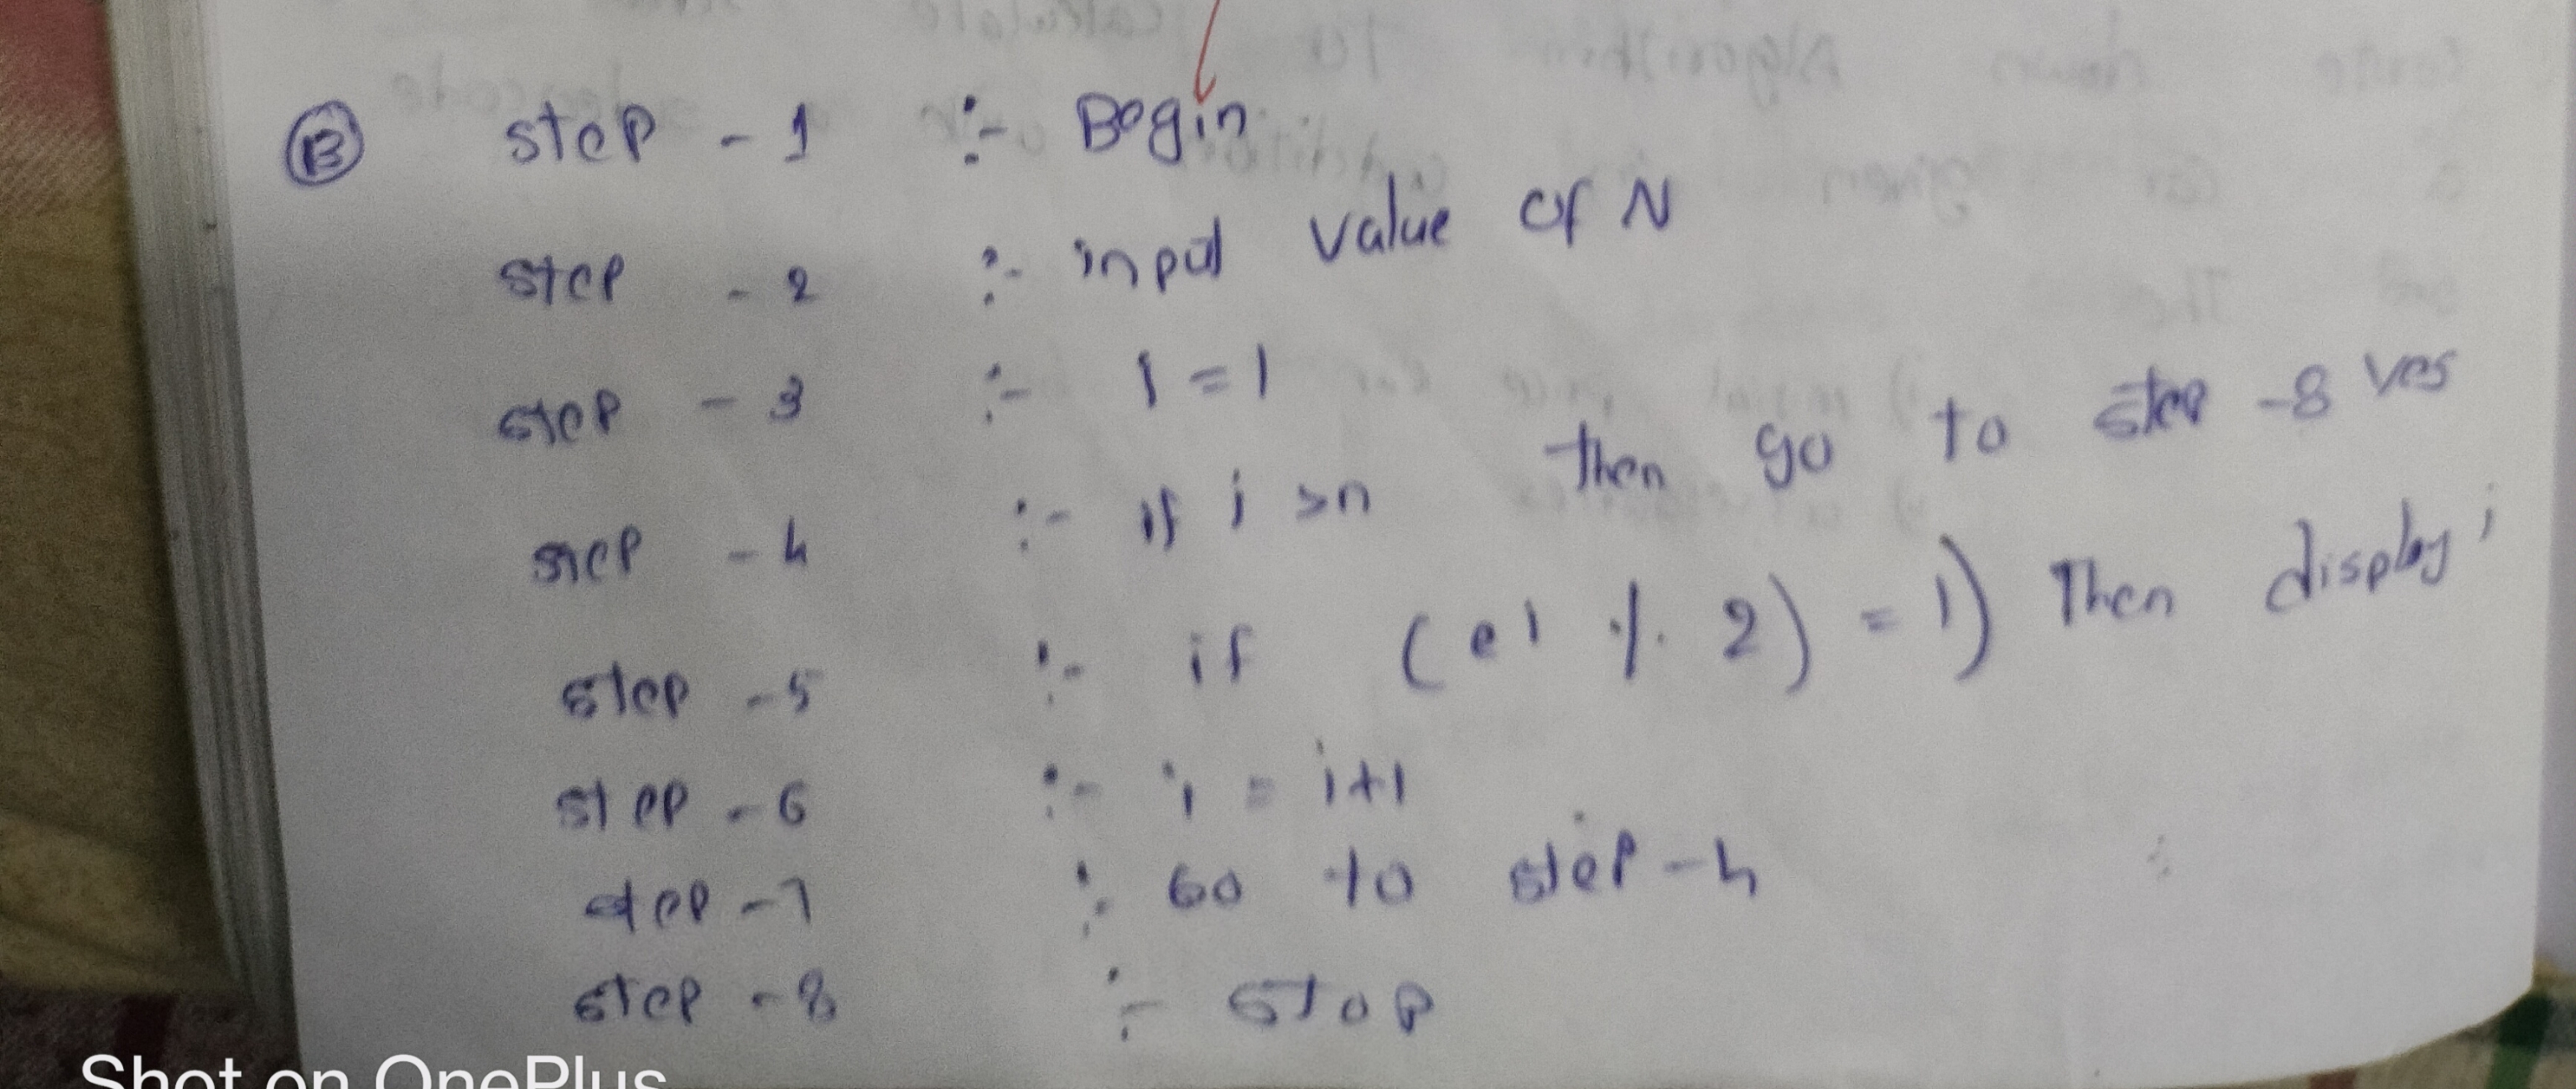 B step - 1 :- Begin
step - 2 :- input value of N
step - 3 :- 1 = 1
step - 4 :- if i >n then go to step -8 yes
step - 5 :- if (e1 % 2) = 1) Then display i
step - 6 :- i = i+1
step - 7 :- Go to step - 4
step - 8 :- stop
Shot on OnePlus